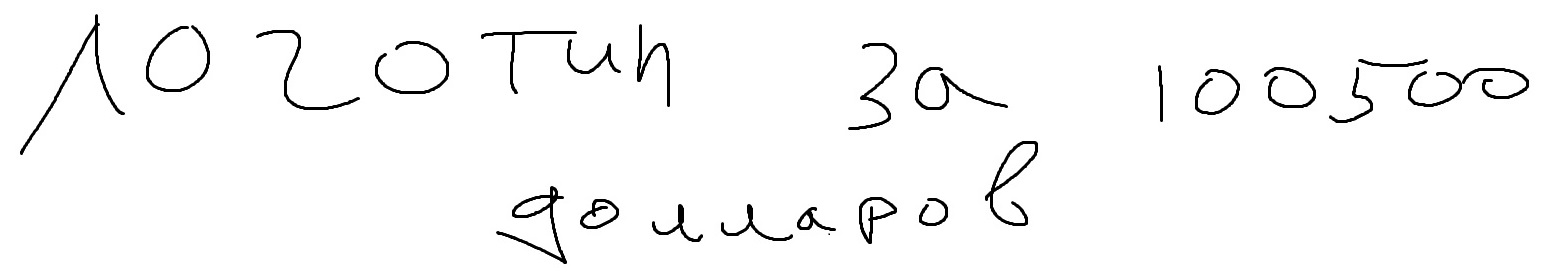 логотип за 100500
долларов